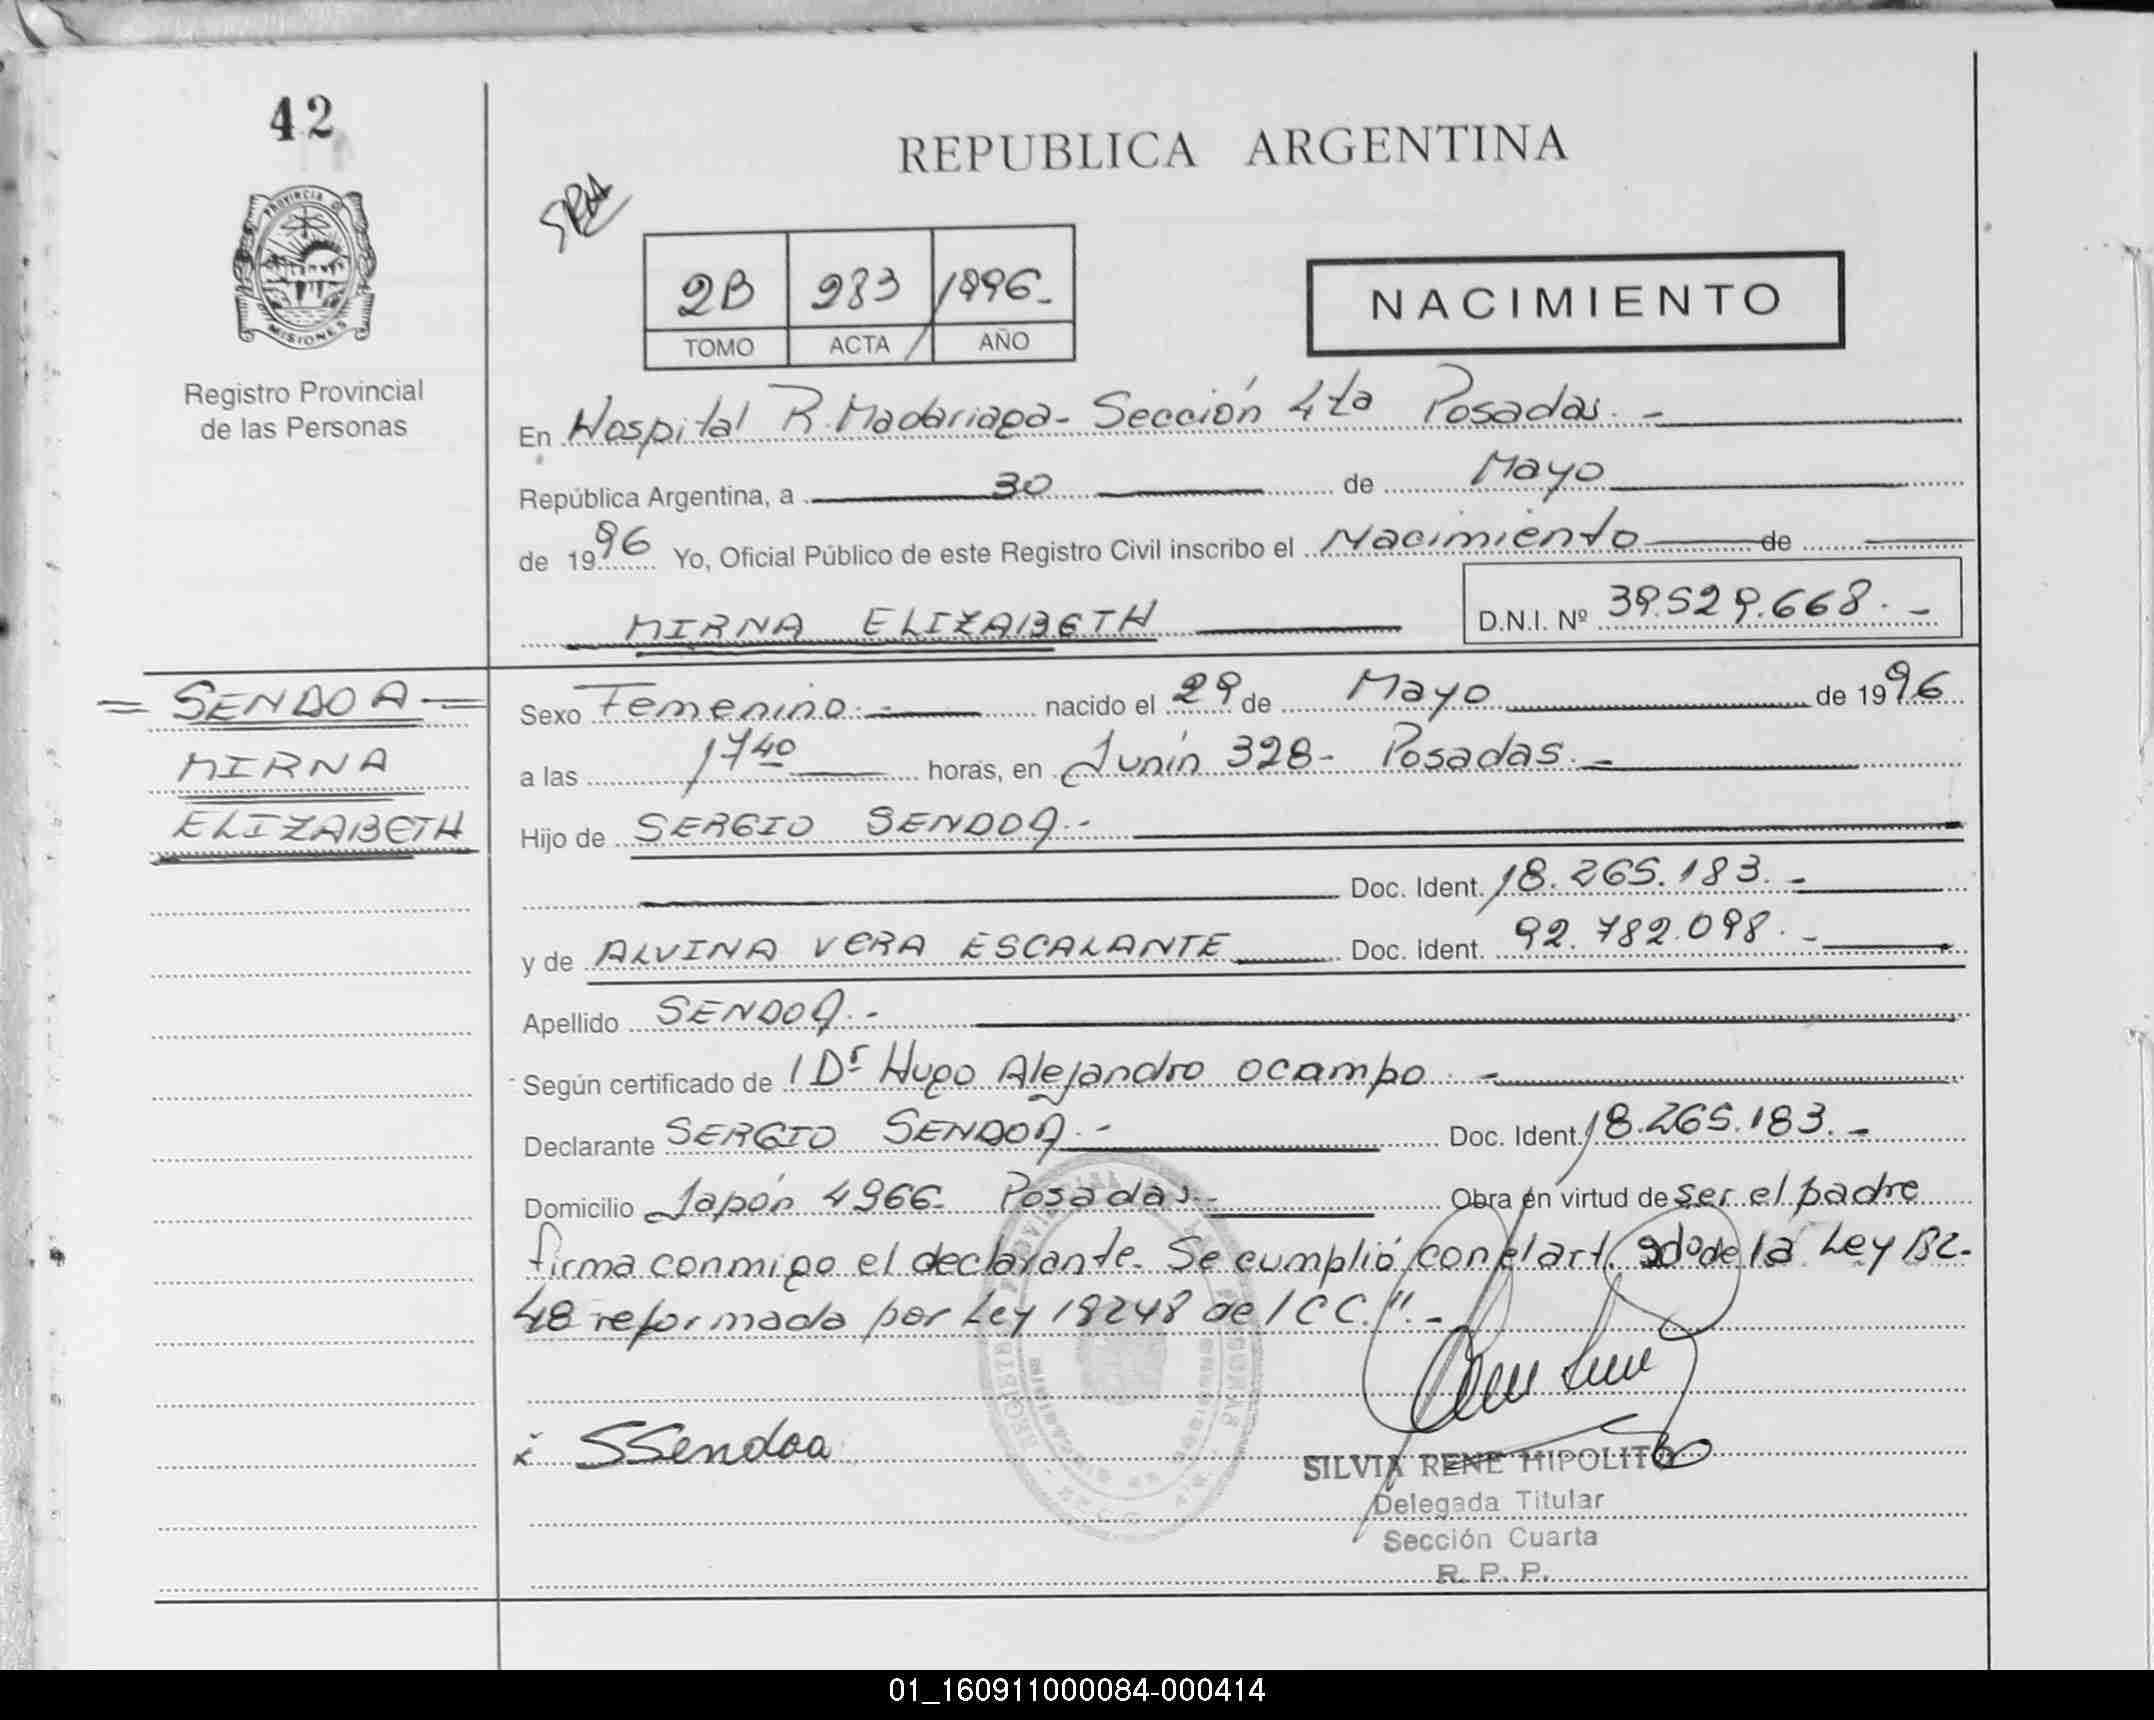 42
REPUBLICA ARGENTINA
PROVINCIA D
MISIONES
2B 283 1996.-
TOMO ACTA AÑO
NACIMIENTO
Registro Provincial
de las Personas
En Hospital R. Madariaga- Sección 4ta Posadas.-
República Argentina, a 30 de Mayo
de 1996 Yo, Oficial Público de este Registro Civil inscribo el Nacimiento de
MIRNA ELIZABETH D.N.I. Nº 39.529.668.-
= SENDOA =
MIRNA
ELIZABETH
Sexo Femenino.- nacido el 29 de Mayo de 1996
a las 17 40 horas, en Junín 328- Posadas.-
Hijo de SERGIO SENDOA.-
Doc. Ident. 18.265.183.-
y de ALVINA VERA ESCALANTE Doc. Ident. 92.782.098.-
Apellido SENDOA.-
Según certificado de l Dr Hugo Alejandro Ocampo.-
Declarante SERGIO SENDOA.- Doc. Ident. 18.265.183.-
Domicilio Japón 4966- Posadas.- Obra en virtud de ser el padre
firma conmigo el declarante. Se cumplió con el art. 2do de la Ley 132-
48 reformada por Ley 18248 del C C.".-
SSendoa
SILVIA RENE HIPOLITO
Delegada Titular
Sección Cuarta
R. P. P.
01_160911000084-000414